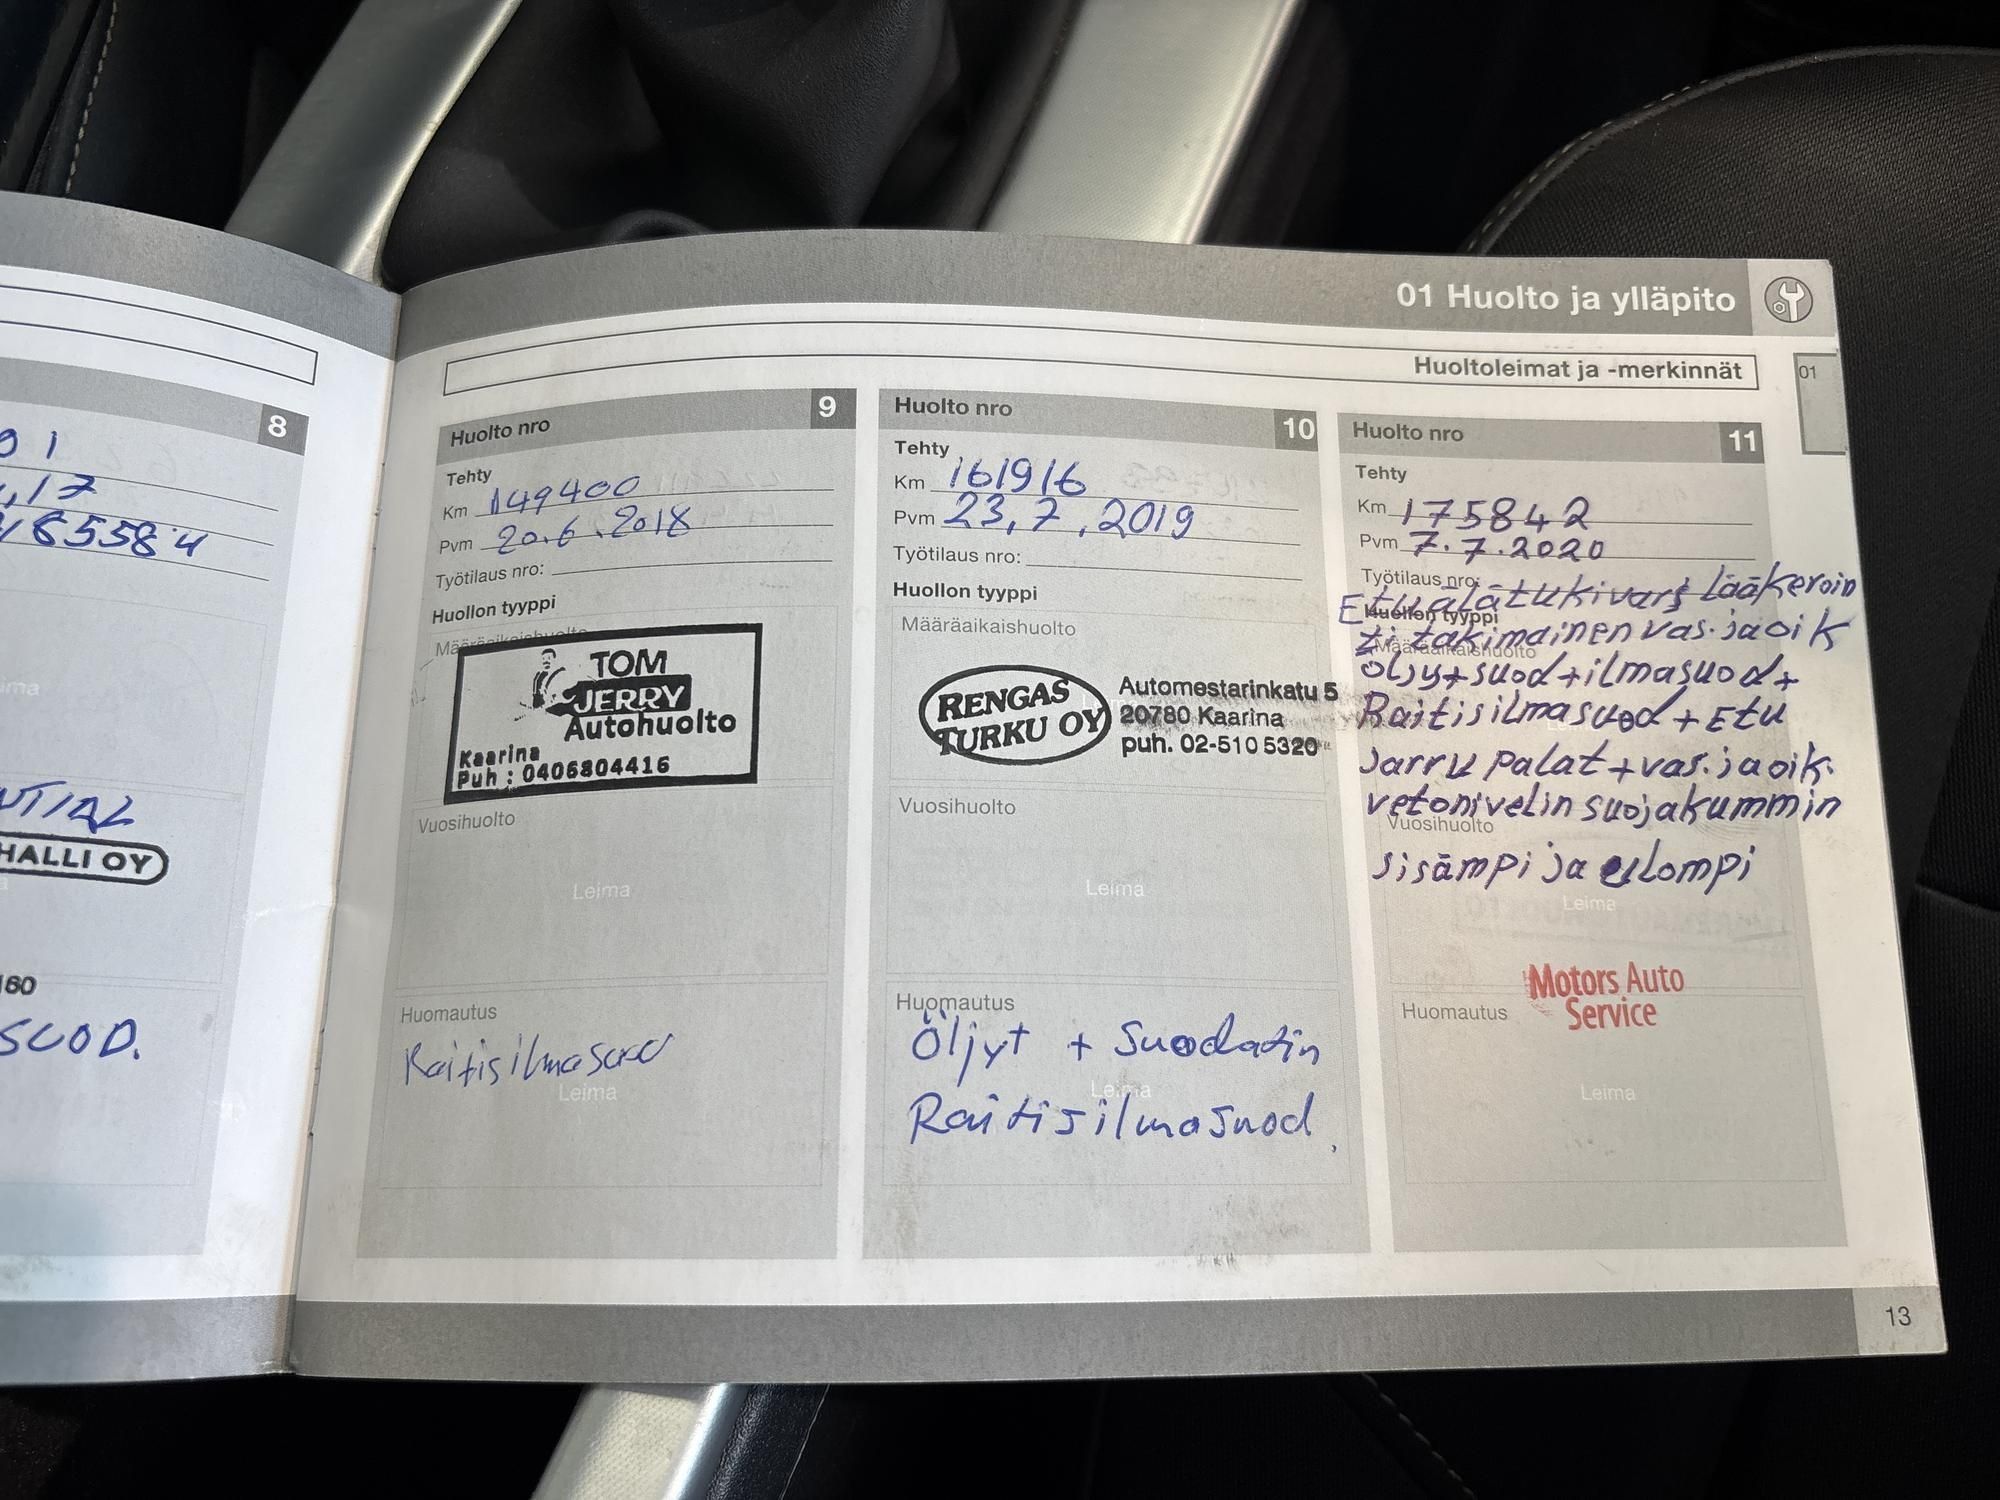 01 Huolto ja ylläpito
Huoltoleimat ja -merkinnät
01
8
01
,17
185584
HALLI OY
160
SUOD.
Huolto nro 9
Tehty
Km 149400
Pvm 20.6.2018
Työtilaus nro:
Huollon tyyppi
Määräaikaishuolto
TOM
JERRY
Autohuolto
Kaarina
Puh : 0406804416
Vuosihuolto
Leima
Huomautus
Raitisilmasuod
Leima
Huolto nro 10
Tehty
Km 161916
Pvm 23.7.2019
Työtilaus nro:
Huollon tyyppi
Määräaikaishuolto
RENGAS
TURKU OY
Automestarinkatu 5
20780 Kaarina
puh. 02-510 5320
Vuosihuolto
Leima
Huomautus
Öljyt + Suodatin
Leima
Raitisilmasuod.
Huolto nro 11
Tehty
Km 175842
Pvm 7.7.2020
Työtilaus nro:
Etualatukivars lääkeroin
Huollon tyyppi
ti takimainen vas. ja oik
Määräaikaishuolto
öljy+suod+ilmasuod+
Raitisilmasuod + Etu
Jarru palat + vas. ja oik.
vetonivelin suojakummin
Vuosihuolto
sisämpi ja ulompi
Leima
Motors Auto
Service
Huomautus
Leima
13